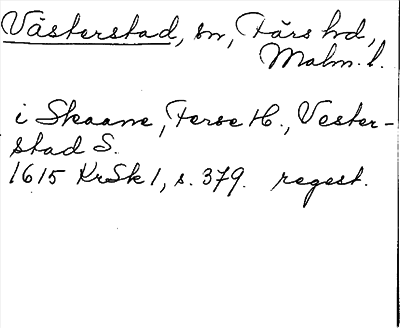 Västerstad, sn, Färs hd,
Malm. l.
i Skaane, Ferse H., Vester-
stad S.
1615 KrSk 1, s. 379. regest.